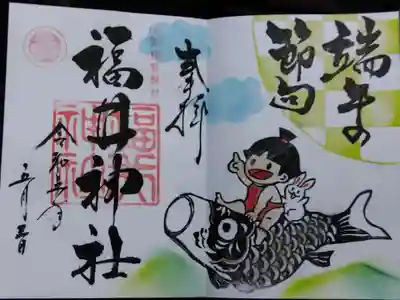 端午の
節句
奉拝
福井神社
令和
五月五日